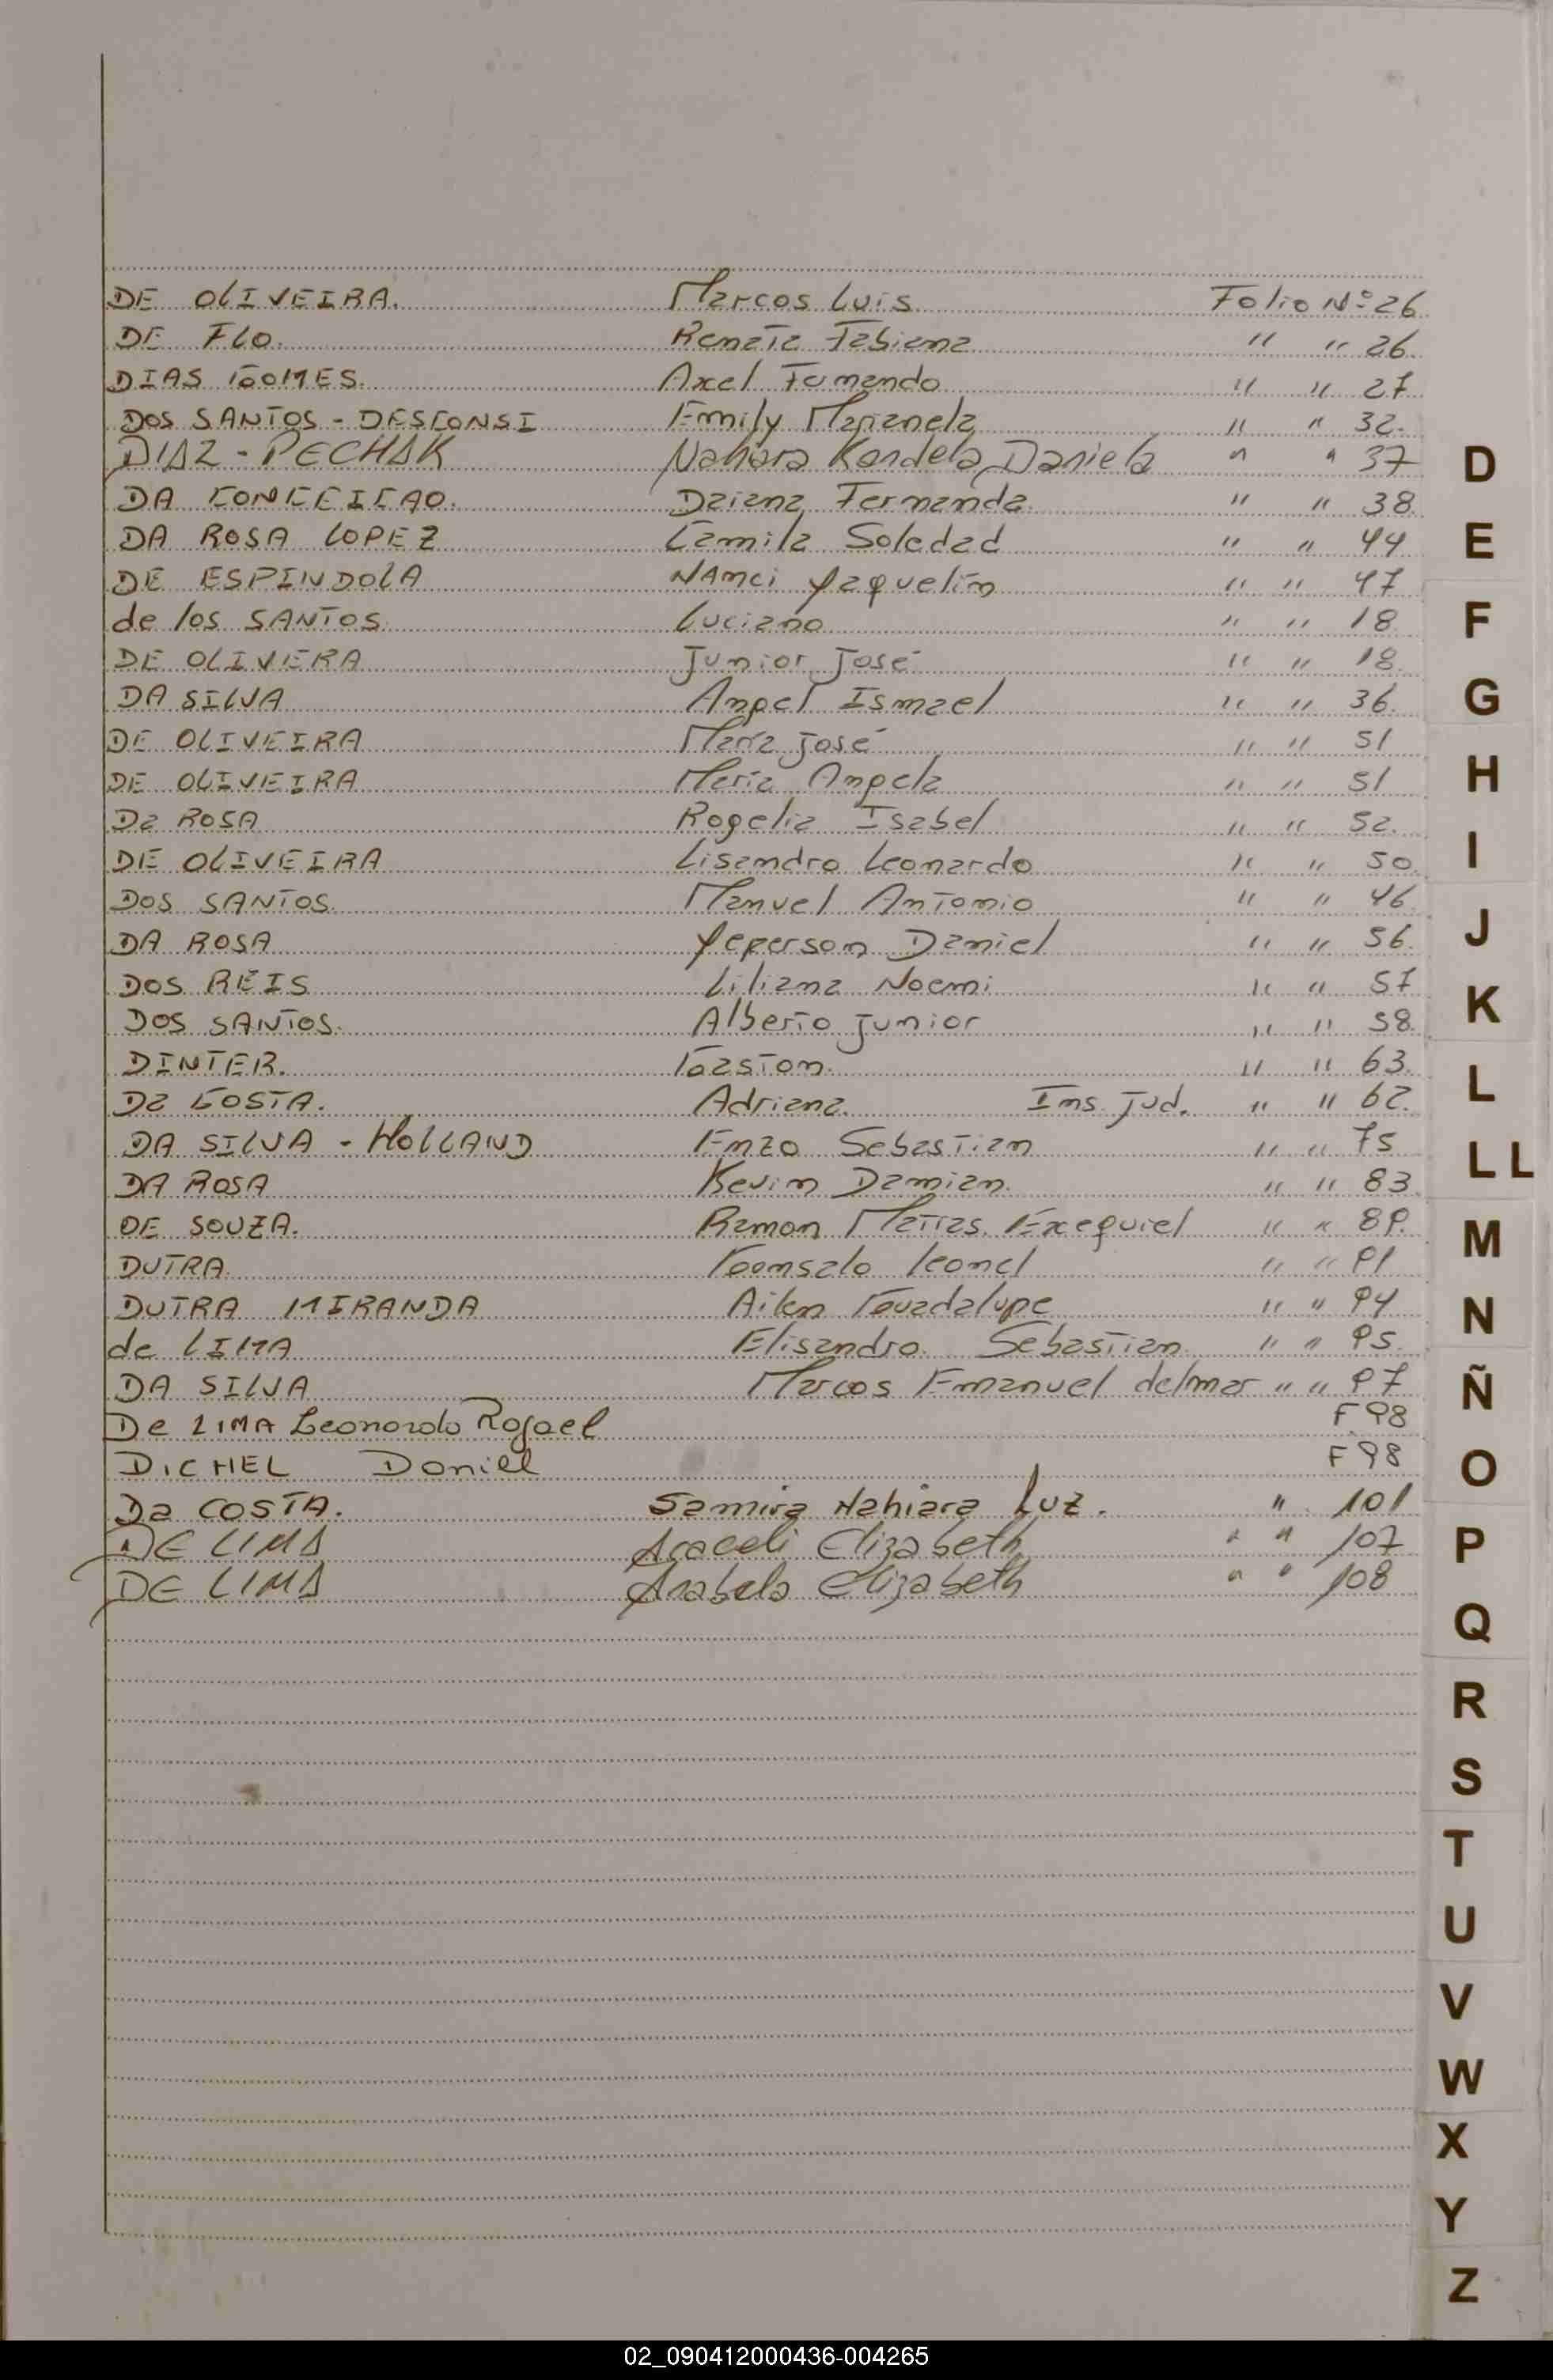 DE OLIVEIRA. Marcos Luis Folio Nº 26
DE FLO. Renata Fabiana " " 26
DIAS GOMES. Axel Fernando " " 27
DOS SANTOS - DESCONSI Emily Marianela " " 32.
DIAZ - PECHAK Nahiara Kandela Daniela " " 37
DA CONCEICAO. Daiana Fernanda " " 38
DA ROSA LOPEZ Camila Soledad " " 44
DE ESPINDOLA NAnci Yaquelin " " 47
de los SANTOS Luciano " " 18
DE OLIVERA Junior José " " 18.
DA SILVA Angel Ismael " " 36.
DE OLIVEIRA María José " " 51
DE OLIVEIRA María Angela " " 51
Da ROSA Rogelia Isabel " " 52.
DE OLIVEIRA Lisandro Leonardo " " 50.
DOS SANTOS Manuel Antonio " " 46
DA ROSA Yeferson Daniel " " 56.
DOS REIS Liliana Noemi " " 57
DOS SANTOS. Alberto Junior " " 58.
DINTER. Gaston. " " 63.
Da COSTA. Adriana. Ins. Jud. " " 62.
DA SILVA - HOLLAND Enzo Sebastian " " 75
DA ROSA Kevin Damian. " " 83.
DE SOUZA. Ramon Matias Exequiel " " 89.
DUTRA. Gonsalo Leonel " " 91
DUTRA MIRANDA Ailen Guadalupe " " 94
de LIMA Elisandro Sebastian " " 95.
DA SILVA Marcos Emanuel delmar " " 97
De LIMA Leonardo Rafael F 98
DICHEL Daniel F 98
Da COSTA. Samira Nahiara Luz. " 101
DE LIMA Araceli Elizabeth " " 107
DE LIMA Anabela Elizabeth " " 108
D
E
F
G
H
I
J
K
L
LL
M
N
Ñ
O
P
Q
R
S
T
U
V
W
X
Y
Z
02_090412000436-004265